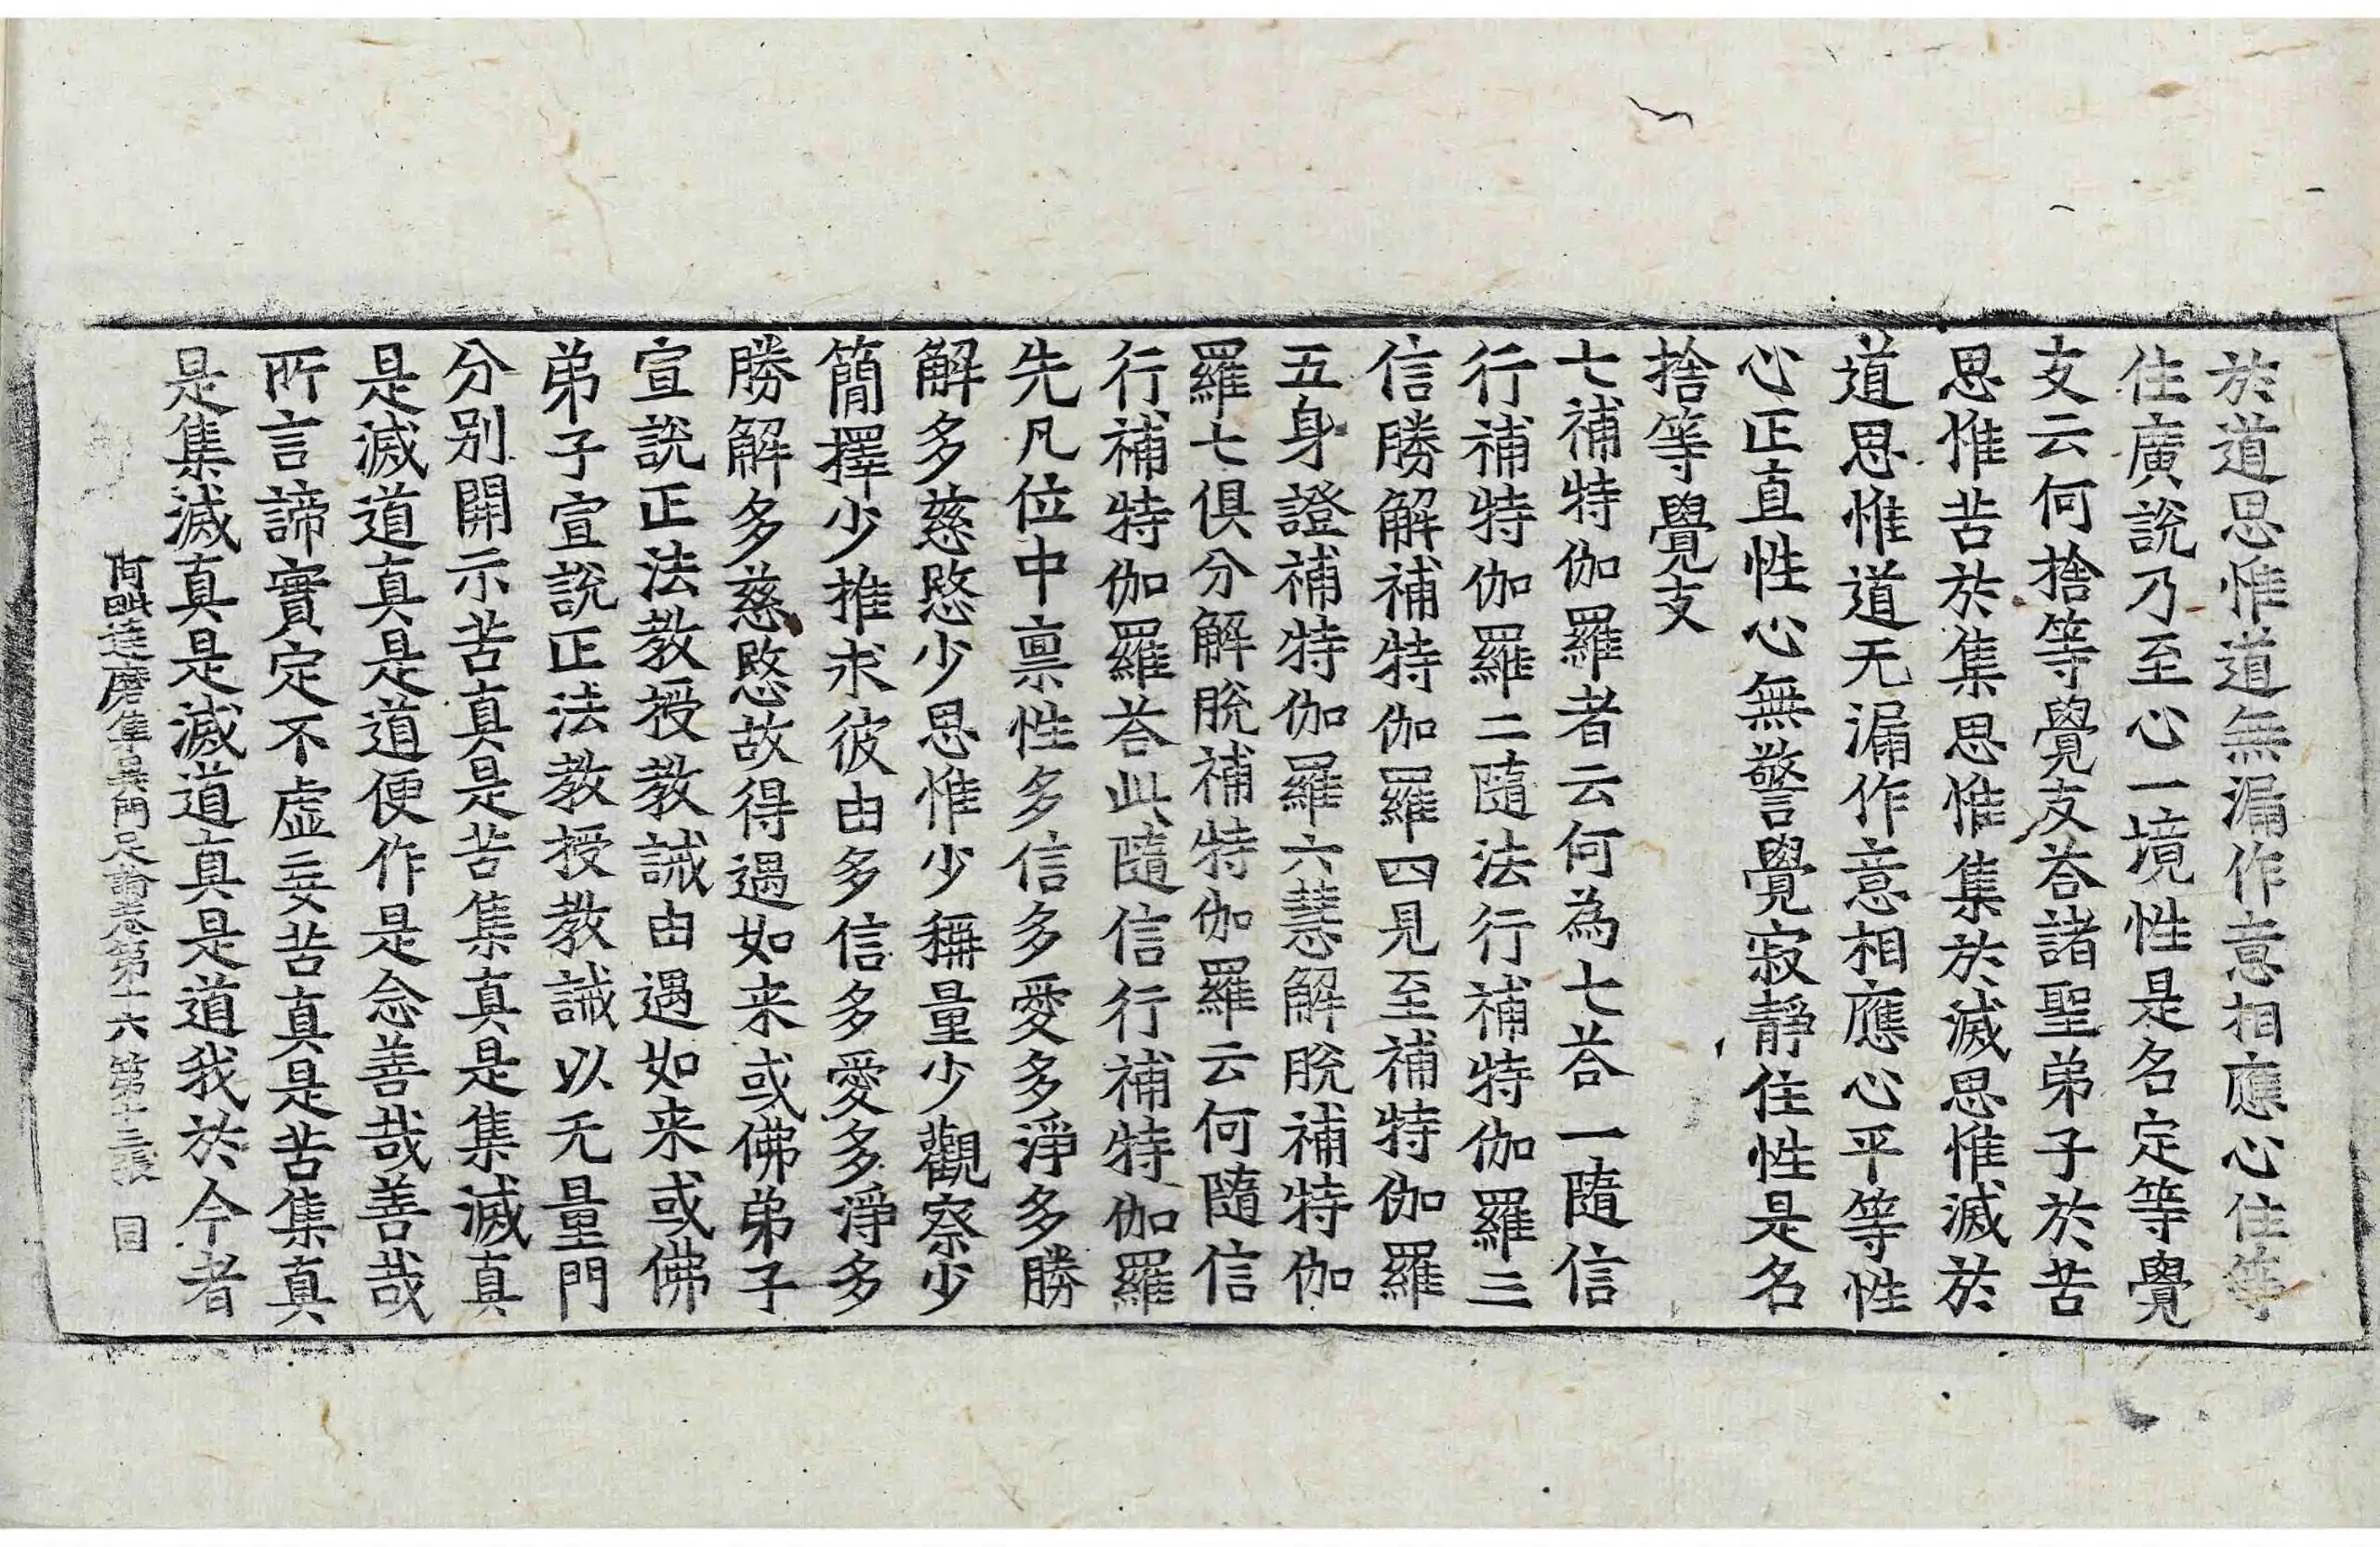 於道思惟道無漏作意相應心住等
住廣說乃至心一境性是名定等覺
支云何捨等覺支荅諸聖弟子於苦
思惟苦於集思惟集於滅思惟滅於
道思惟道无漏作意相應心平等性
心正直性心無警覺寂靜住性是名
捨等覺支
七補特伽羅者云何為七荅一隨信
行補特伽羅二隨法行補特伽羅三
信勝解補特伽羅四見至補特伽羅
五身證補特伽羅六慧解脫補特伽
羅七俱分解脫補特伽羅云何隨信
行補特伽羅荅此隨信行補特伽羅
先凡位中禀性多信多愛多淨多勝
解多慈愍少思惟少稱量少觀察少
簡擇少推求彼由多信多愛多淨多
勝解多慈愍故得遇如来或佛弟子
宣說正法教授教誡由遇如来或佛
弟子宣說正法教授教誡以无量門
分别開示苦真是苦集真是集滅真
是滅道真是道便作是念善哉善哉
所言諦實定不虛妄苦真是苦集真
是集滅真是滅道真是道我於今者
阿毗達磨集異門足論卷第十六 第十三張 目